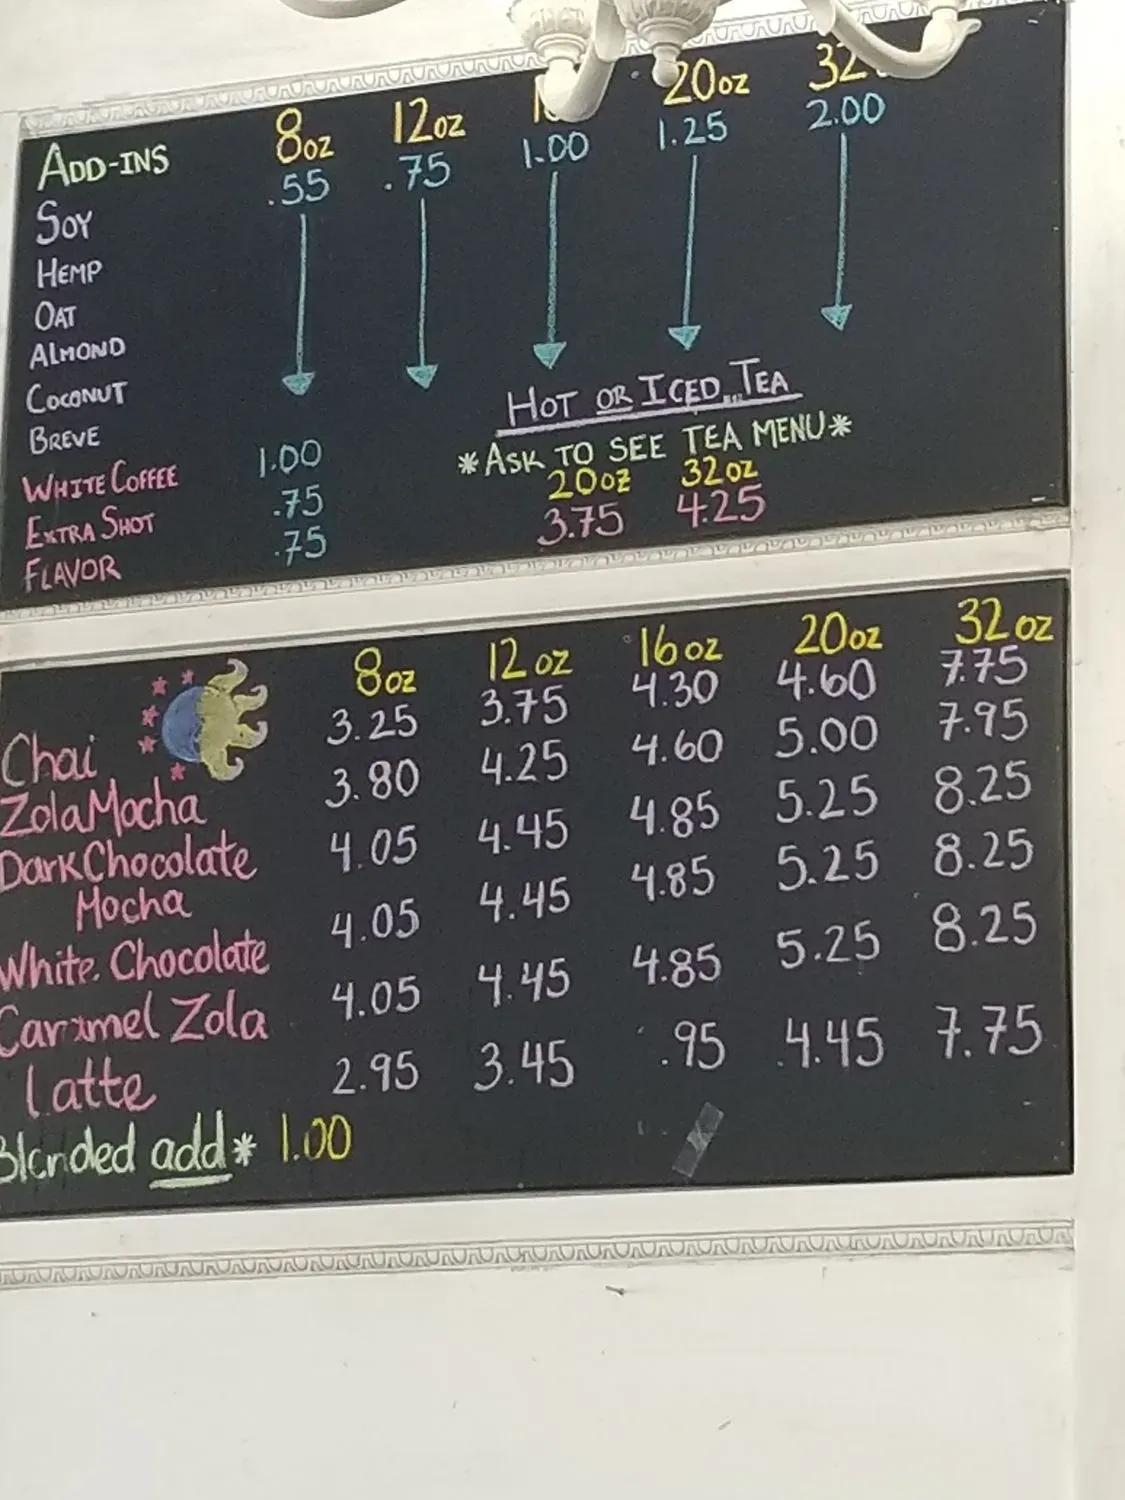 ADD-INS 8oz 12oz 20oz
.55 .75 1.00 1.25 2.00
SOY
HEMP
OAT
ALMOND
COCONUT
BREVE
WHITE COFFEE 1.00
EXTRA SHOT .75
FLAVOR .75
HOT OR ICED TEA
*ASK TO SEE TEA MENU*
20oz 32oz
3.75 4.25
8oz 12oz 16oz 20oz 32oz
Chai 3.25 3.75 4.30 4.60 7.75
Zola Mocha 3.80 4.25 4.60 5.00 7.95
Dark Chocolate 4.05 4.45 4.85 5.25 8.25
Mocha
White Chocolate 4.05 4.45 4.85 5.25 8.25
Caramel Zola 4.05 4.45 4.85 5.25 8.25
Latte 2.95 3.45 .95 4.45 7.75
Blended add* 1.00